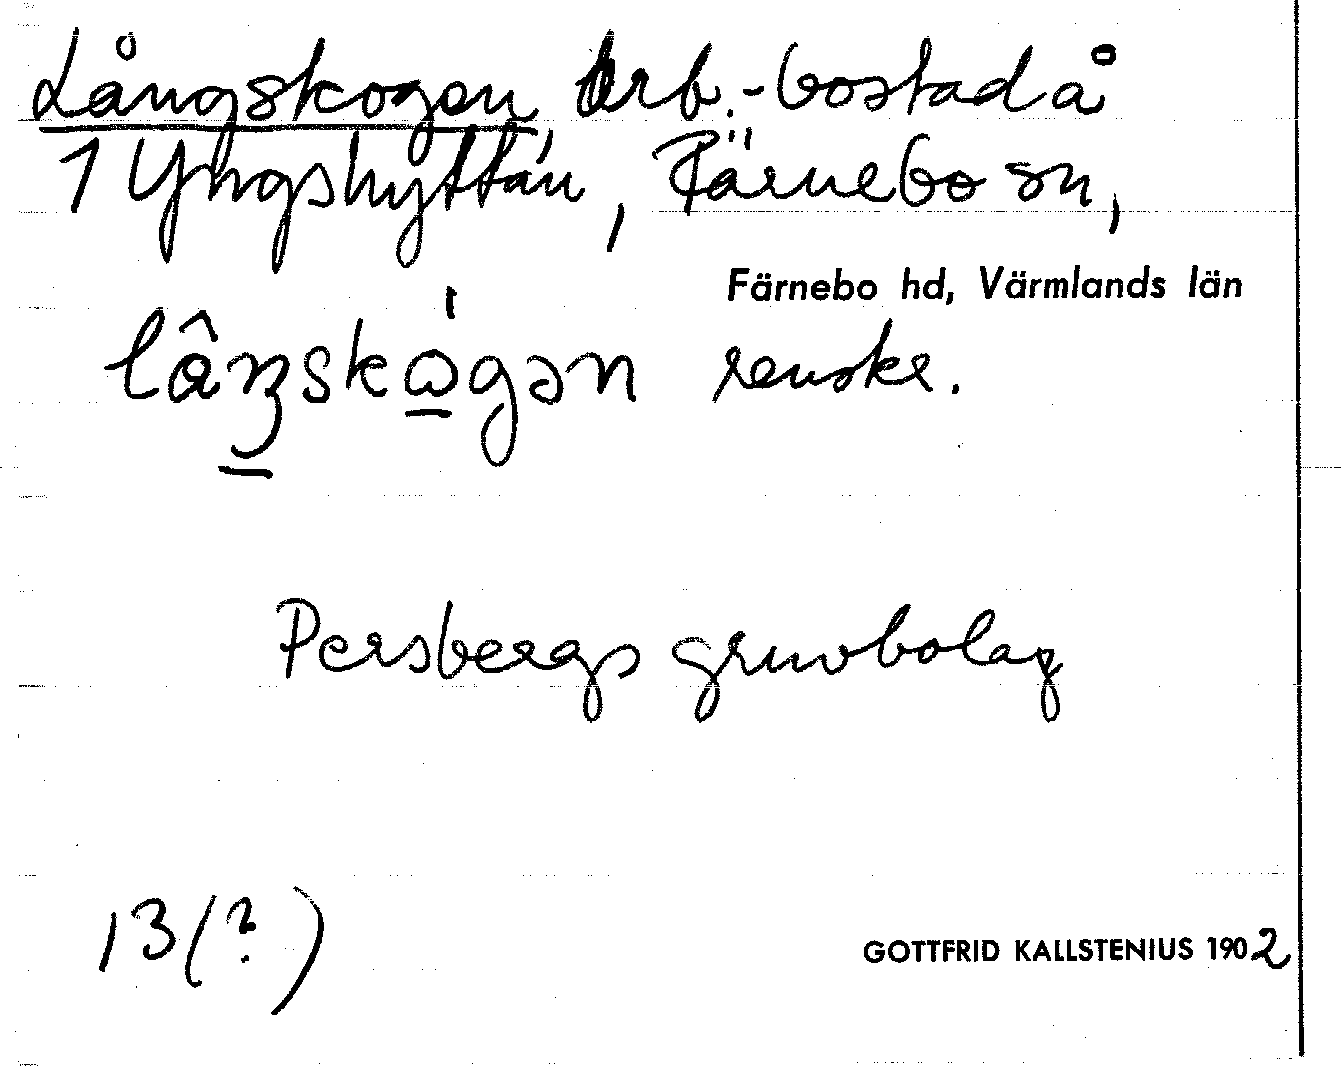 Långskogen, Arb.-bostad å
1 Yngshyttan, Färnebo sn,
Färnebo hd, Värmlands län
renskr.
Persbergs gruvbolag
13(?)
GOTTFRID KALLSTENIUS 1902